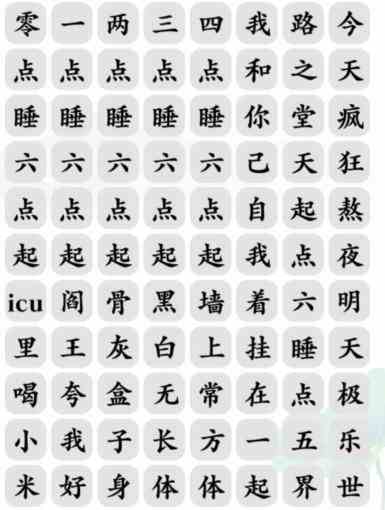 零 一 两 三 四 我 路 今
点 点 点 点 点 和 之 天
睡 睡 睡 睡 睡 你 堂 疯
六 六 六 六 六 己 天 狂
点 点 点 点 点 自 起 熬
起 起 起 起 起 我 点 夜
icu 阎 骨 黑 墙 着 六 明
里 王 灰 白 上 挂 睡 天
喝 夸 盒 无 常 在 点 极
小 我 子 长 方 一 五 乐
米 好 身 体 体 起 界 世